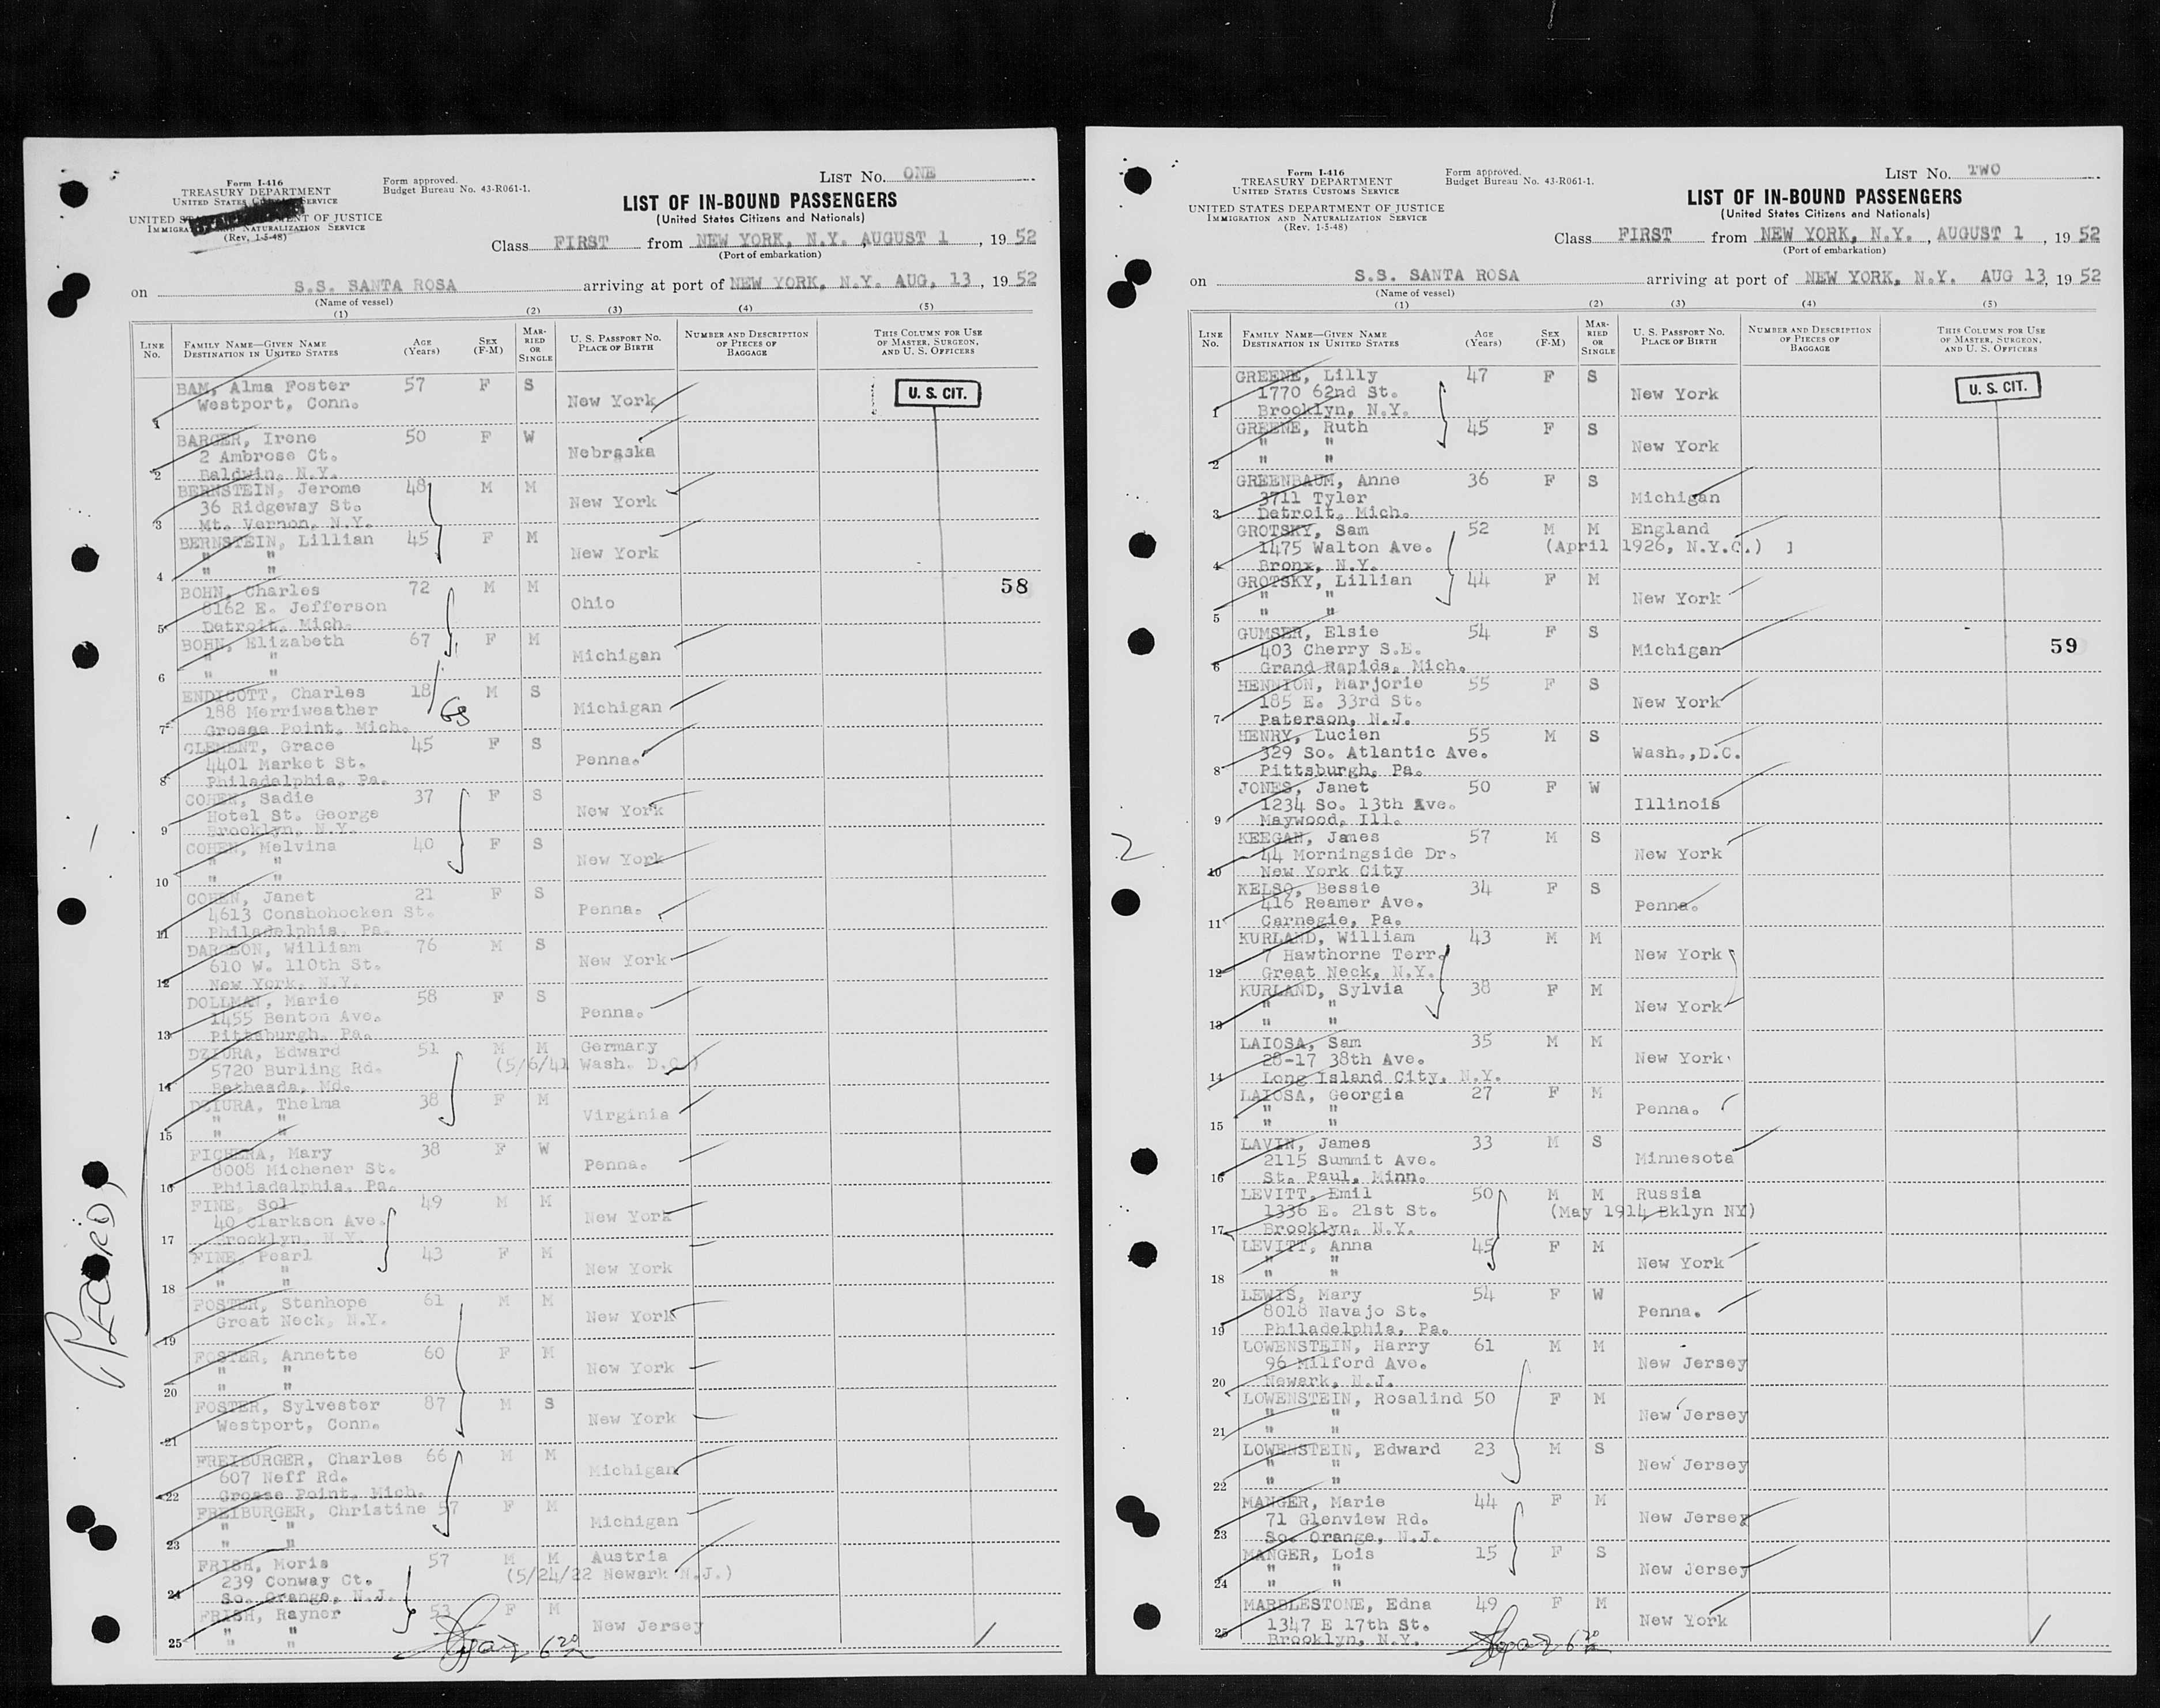 Form I-416
TREASURY DEPARTMENT
UNITED STATES CUSTOMS SERVICE
UNITED STATES DEPARTMENT OF JUSTICE
IMMIGRATION AND NATURALIZATION SERVICE
(Rev. 1-5-48)
Form approved.
Budget Bureau No. 43-R061-1.
LIST No. ONE
LIST OF IN-BOUND PASSENGERS
(United States Citizens and Nationals)
Class FIRST from NEW YORK, N.Y. AUGUST 1, 1952
(Port of embarkation)
on S.S. SANTA ROSA arriving at port of NEW YORK, N.Y. AUG, 13, 1952
(Name of vessel)
(1) (2) (3) (4) (5)
LINE No. FAMILY NAME—GIVEN NAME DESTINATION IN UNITED STATES AGE (Years) SEX (F-M) MARRIED OR SINGLE U. S. PASSPORT NO. PLACE OF BIRTH NUMBER AND DESCRIPTION OF PIECES OF BAGGAGE THIS COLUMN FOR USE OF MASTER, SURGEON, AND U. S. OFFICERS
BAM, Alma Foster 57 F S
Westport, Conn. New York U. S. CIT.
1
BARGER, Irene 50 F W
2 Ambrose Ct. Nebraska
2 Baldwin, N.Y.
BERNSTEIN, Jerome 48 M M
36 Ridgeway St. New York
3 Mt. Vernon, N.Y.
BERNSTEIN, Lillian 45 F M
" " New York
4 " "
BOHN, Charles 72 M M 58
8162 E. Jefferson Ohio
5 Detroit, Mich.
BOHN, Elizabeth 67 F M
" " Michigan
6 " "
ENDICOTT, Charles 18 M S
188 Merriweather Michigan
7 Grosse Point, Mich.
CLEMENT, Grace 45 F S
4401 Market St. Penna.
8 Philadelphia, Pa.
COHEN, Sadie 37 F S
Hotel St. George New York
9 Brooklyn, N.Y.
COHEN, Melvina 40 F S
" " New York
10 " "
COHEN, Janet 21 F S
4613 Conshohocken St. Penna.
11 Philadelphia, Pa.
DARGEON, William 76 M S
610 W. 110th St. New York
12 New York, N.Y.
DOLLMAN, Marie 58 F S
1455 Benton Ave. Penna.
13 Pittsburgh, Pa.
DZIURA, Edward 51 M M Germany
5720 Burling Rd. (5/6/41 Wash. D.C.)
14 Bethesda, Md.
DZIURA, Thelma 38 F M
" " Virginia
15 " "
FICHERA, Mary 38 F W
8008 Michener St. Penna.
16 Philadelphia, Pa.
FINE, Sol 49 M M
40 Clarkson Ave. New York
17 Brooklyn, N.Y.
FINE, Pearl 43 F M
" " New York
18 " "
FOSTER, Stanhope 61 M M
Great Neck, N.Y. New York
19
FOSTER, Annette 60 F M
" " New York
20 " "
FOSTER, Sylvester 87 M S
Westport, Conn. New York
21
FREIBURGER, Charles 66 M M
607 Neff Rd. Michigan
22 Grosse Point, Mich.
FREIBURGER, Christine 57 F M
" " Michigan
23 " "
FRISH, Moris 57 M M Austria
239 Conway Ct. (5/24/22 Newark N.J.)
24 So. Orange, N.J.
FRISH, Rayner 53 F M
" " New Jersey
25 " "
Form I-416
TREASURY DEPARTMENT
UNITED STATES CUSTOMS SERVICE
UNITED STATES DEPARTMENT OF JUSTICE
IMMIGRATION AND NATURALIZATION SERVICE
(Rev. 1-5-48)
Form approved.
Budget Bureau No. 43-R061-1.
LIST No. TWO
LIST OF IN-BOUND PASSENGERS
(United States Citizens and Nationals)
Class FIRST from NEW YORK, N.Y., AUGUST 1, 1952
(Port of embarkation)
on S.S. SANTA ROSA arriving at port of NEW YORK, N.Y. AUG 13, 1952
(Name of vessel)
(1) (2) (3) (4) (5)
LINE No. FAMILY NAME—GIVEN NAME DESTINATION IN UNITED STATES AGE (Years) SEX (F-M) MARRIED OR SINGLE U. S. PASSPORT NO. PLACE OF BIRTH NUMBER AND DESCRIPTION OF PIECES OF BAGGAGE THIS COLUMN FOR USE OF MASTER, SURGEON, AND U. S. OFFICERS
GREENE, Lilly 47 F S
1770 62nd St. New York U. S. CIT.
1 Brooklyn, N.Y.
GREENE, Ruth 45 F S
" " New York
2 " "
GREENBAUM, Anne 36 F S
3711 Tyler Michigan
3 Detroit, Mich.
GROTSKY, Sam 52 M M England
1475 Walton Ave. (April 1926, N.Y.C.) ]
4 Bronx, N.Y.
GROTSKY, Lillian 44 F M
" " New York
5 " "
GUMSER, Elsie 54 F S
403 Cherry S.E. Michigan 59
6 Grand Rapids, Mich.
HENNION, Marjorie 55 F S
185 E. 33rd St. New York
7 Paterson, N.J.
HENRY, Lucien 55 M S
329 So. Atlantic Ave. Wash.,D.C.
8 Pittsburgh, Pa.
JONES, Janet 50 F W
1234 So. 13th Ave. Illinois
9 Maywood, Ill.
KEEGAN, James 57 M S
44 Morningside Dr. New York
10 New York City
KELSO, Bessie 34 F S
416 Reamer Ave. Penna.
11 Carnegie, Pa.
KURLAND, William 43 M M
7 Hawthorne Terr. New York
12 Great Neck, N.Y.
KURLAND, Sylvia 38 F M
" " New York
13 " "
LAIOSA, Sam 35 M M
28-17 38th Ave. New York
14 Long Island City, N.Y.
LAIOSA, Georgia 27 F M
" " Penna.
15 " "
LAVIN, James 33 M S
2115 Summit Ave. Minnesota
16 St. Paul, Minn.
LEVITT, Emil 50 M M Russia
1336 E. 21st St. (May 1914 Bklyn NY)
17 Brooklyn, N.Y.
LEVITT, Anna 45 F M
" " New York
18 " "
LEWIS, Mary 54 F W
8018 Navajo St. Penna.
19 Philadelphia, Pa.
LOWENSTEIN, Harry 61 M M
96 Milford Ave. New Jersey
20 Newark, N.J.
LOWENSTEIN, Rosalind 50 F M
" " New Jersey
21 " "
LOWENSTEIN, Edward 23 M S
" " New Jersey
22 " "
MANGER, Marie 44 F M
71 Glenview Rd. New Jersey
23 So. Orange, N.J.
MANGER, Lois 15 F S
" " New Jersey
24 " "
MARBLESTONE, Edna 49 F M
1347 E 17th St. New York
25 Brooklyn, N.Y.
2